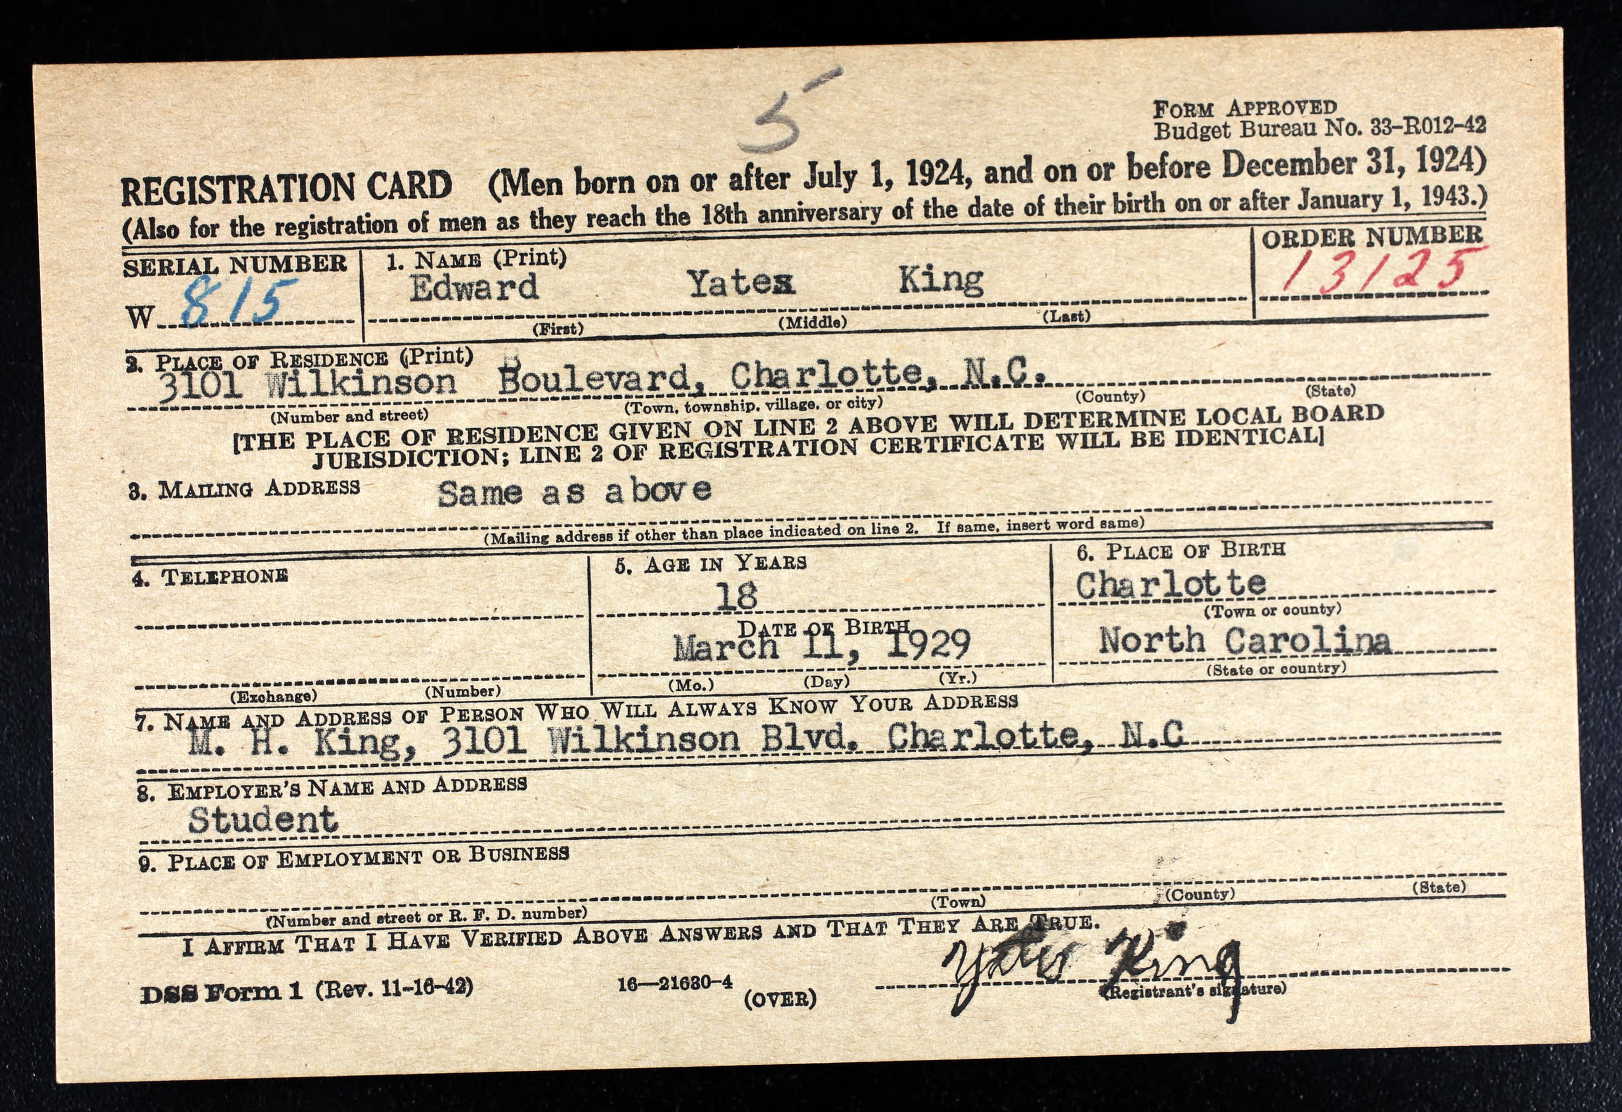 5
FORM APPROVED
Budget Bureau No. 33-R012-42
REGISTRATION CARD (Men born on or after July 1, 1924, and on or before December 31, 1924)
(Also for the registration of men as they reach the 18th anniversary of the date of their birth on or after January 1, 1943.)
SERIAL NUMBER
1. NAME (Print)
ORDER NUMBER
W 815
Edward Yates King
13125
(First) (Middle) (Last)
2. PLACE OF RESIDENCE (Print)
3101 Wilkinson Boulevard, Charlotte, N.C.
(Number and street) (Town, township, village, or city) (County) (State)
[THE PLACE OF RESIDENCE GIVEN ON LINE 2 ABOVE WILL DETERMINE LOCAL BOARD
JURISDICTION; LINE 2 OF REGISTRATION CERTIFICATE WILL BE IDENTICAL]
3. MAILING ADDRESS
Same as above
(Mailing address if other than place indicated on line 2. If same, insert word same)
4. TELEPHONE
5. AGE IN YEARS
6. PLACE OF BIRTH
18
Charlotte
(Town or county)
DATE OF BIRTH
March 11, 1929
North Carolina
(Exchange) (Number)
(Mo.) (Day) (Yr.)
(State or country)
7. NAME AND ADDRESS OF PERSON WHO WILL ALWAYS KNOW YOUR ADDRESS
M. H. King, 3101 Wilkinson Blvd. Charlotte, N.C
8. EMPLOYER'S NAME AND ADDRESS
Student
9. PLACE OF EMPLOYMENT OR BUSINESS
(Number and street or R. F. D. number) (Town) (County) (State)
I AFFIRM THAT I HAVE VERIFIED ABOVE ANSWERS AND THAT THEY ARE TRUE.
Yates King
DSS Form 1 (Rev. 11-16-42) 16—21630-4 (OVER) (Registrant's signature)